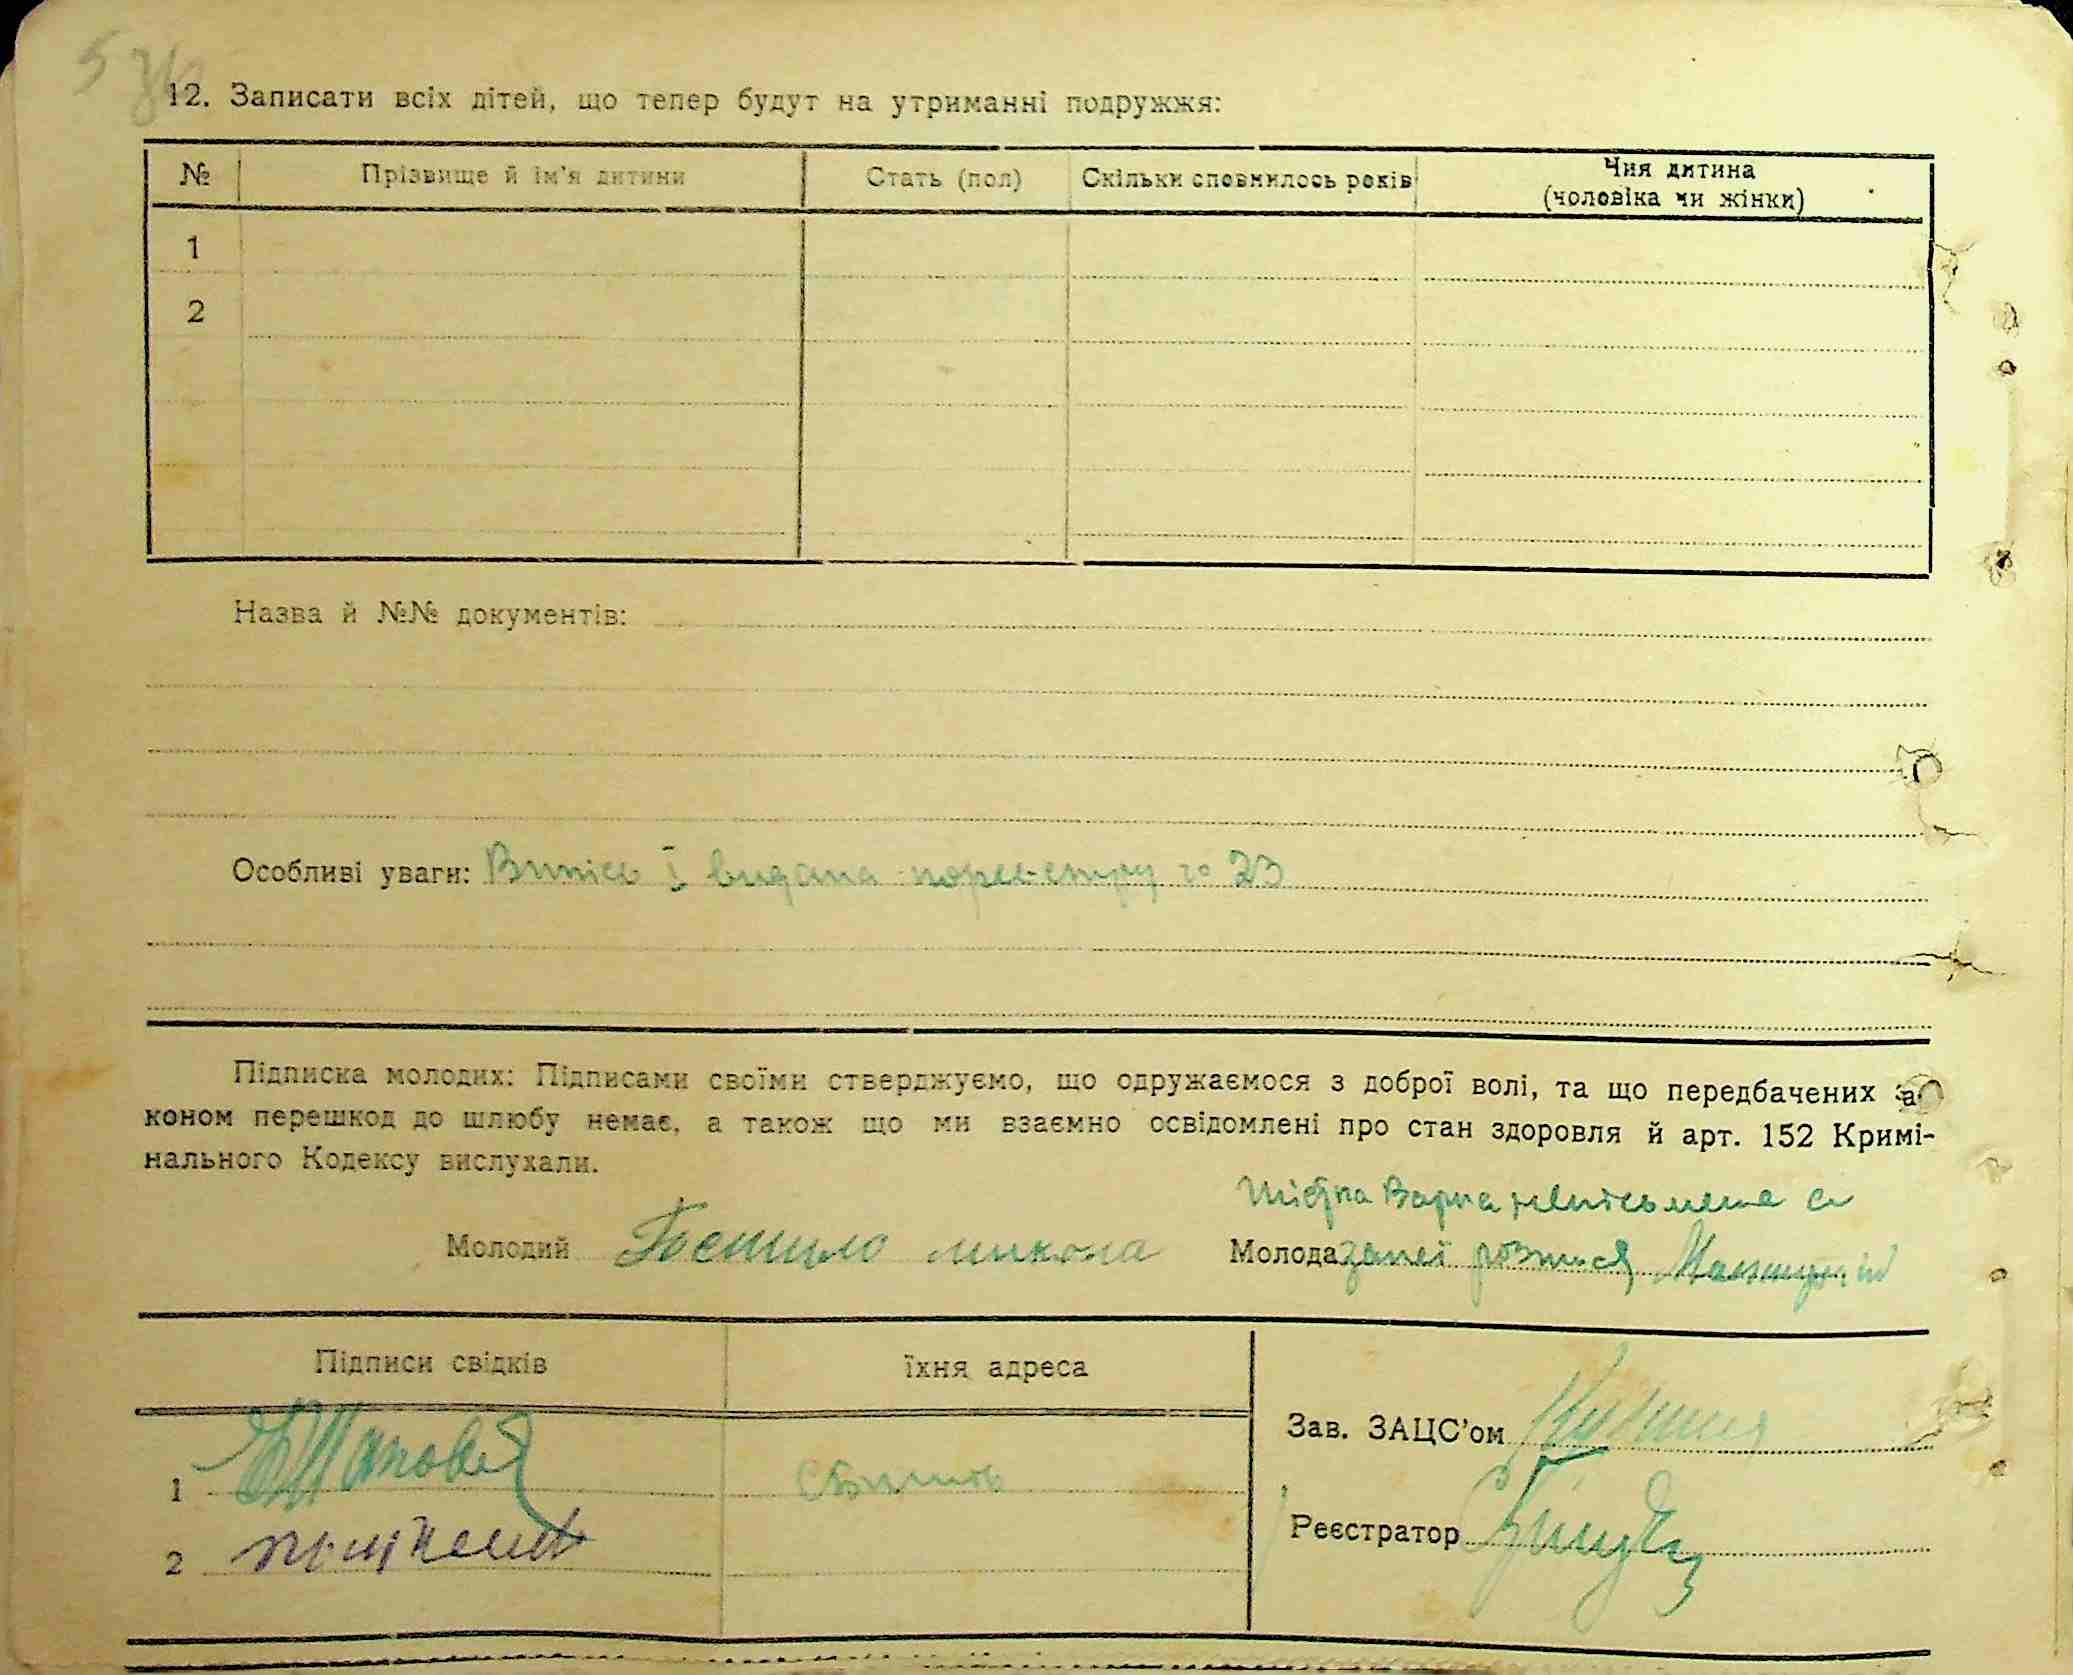 5 зв
12. Записати всіх дітей, що тепер будут на утриманні подружжя:
№ Прізвище й ім'я дитини Стать (пол) Скільки сповнилось років Чия дитина (чоловіка чи жінки)
1
2
Назва й №№ документів:
Особливі уваги: Випісь і видана пореєстру 23
Підписка молодих: Підписами своїми стверджуємо, що одружаємося з доброї волі, та що передбачених за-
коном перешкод до шлюбу немає, а також що ми взаємно освідомлені про стан здоровля й арт. 152 Кримі-
нального Кодексу вислухали.
Варка неписьмена а
Молодий Гостило микола Молода занеї розпися
Підписи свідків їхня адреса
Зав. ЗАЦС'ом
1
Реєстратор
2